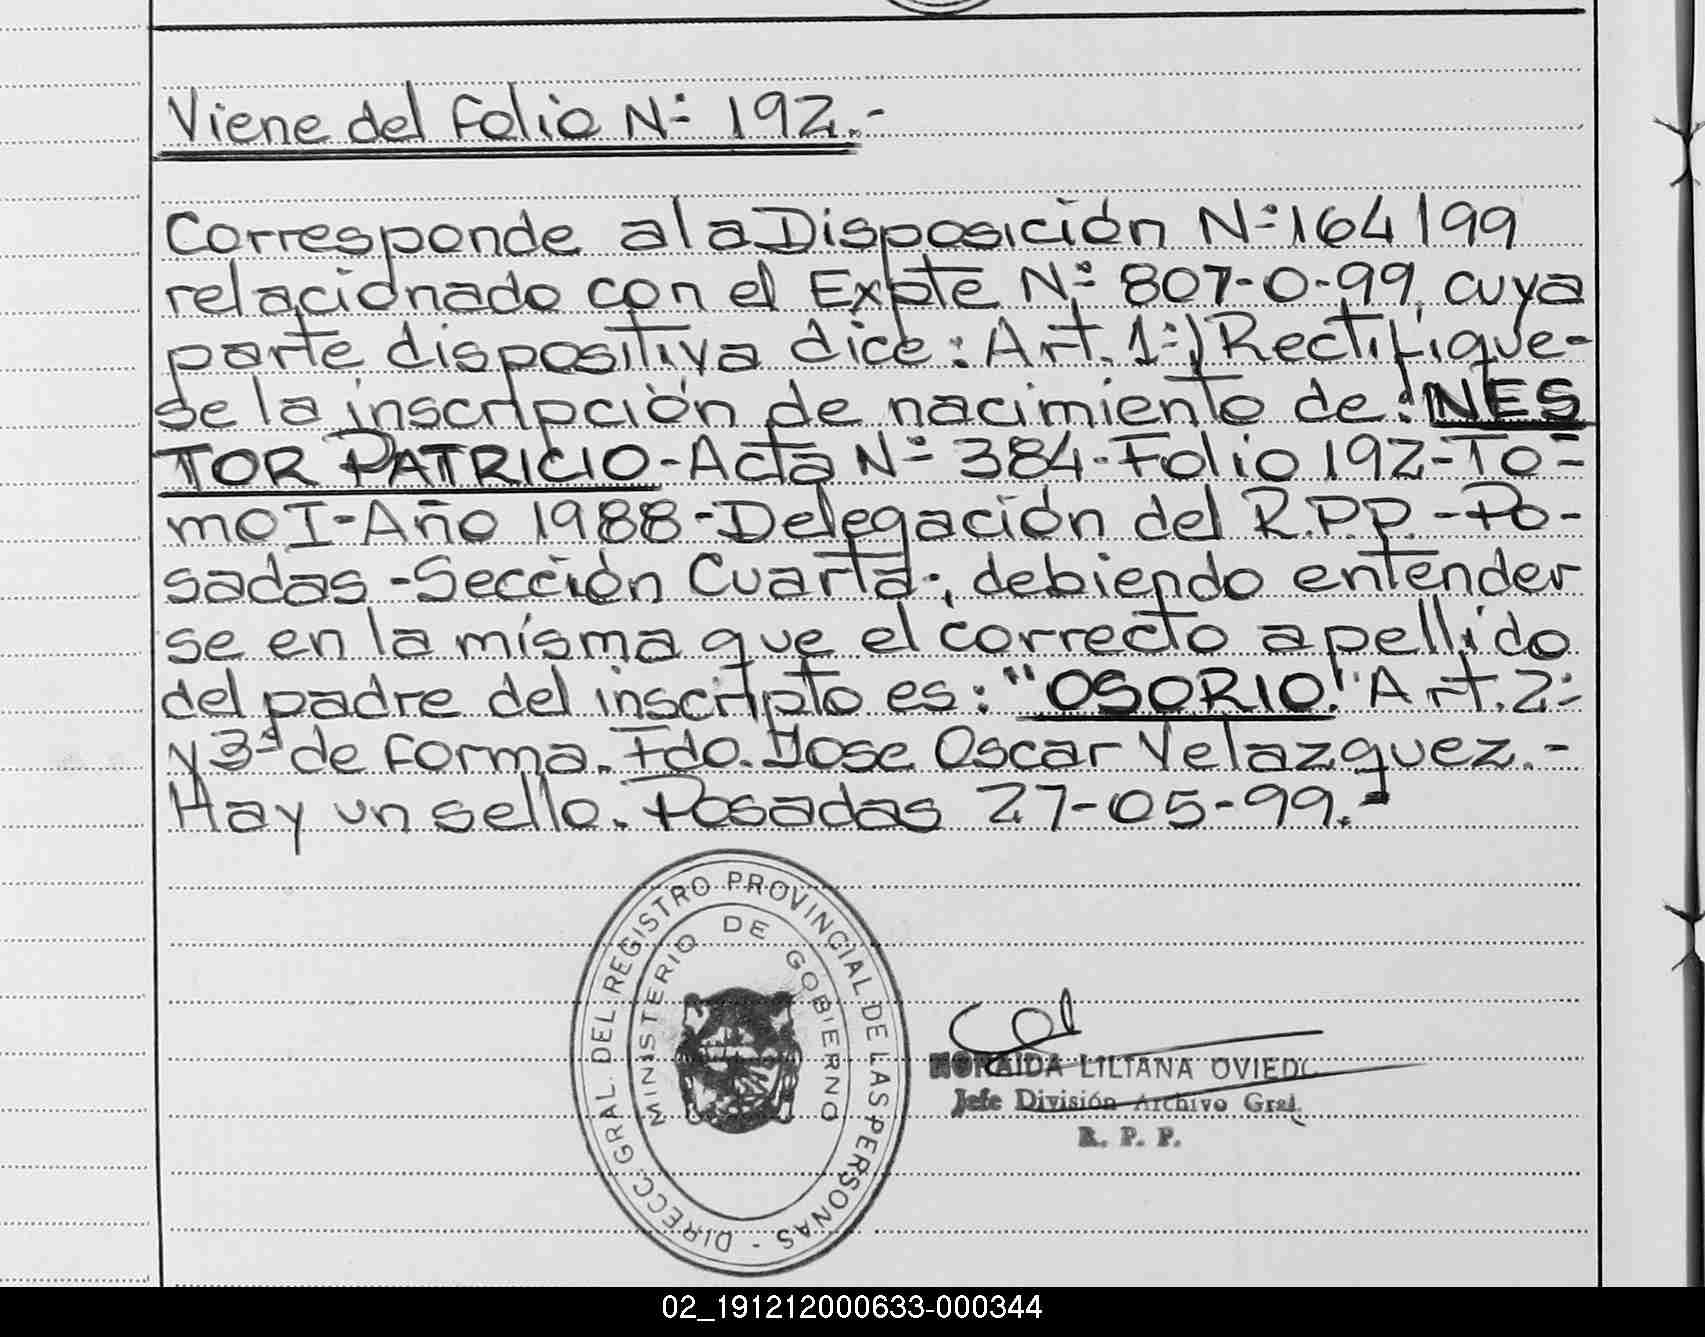 Viene del folio Nº 192.-
Corresponde a la Disposición Nº 164/99
relacionado con el Expte Nº 807-O-99, cuya
parte dispositiva dice: Art. 1º) Rectifique-
se la inscripción de nacimiento de: NES
TOR PATRICIO-Acta Nº 384-Folio 192-To-
mo I-Año 1988-Delegación del R.P.P.-Po-
sadas-Sección Cuarta-, debiendo entender
se en la misma que el correcto apellido
del padre del inscripto es: "OSORIO". Art. 2º
y 3º de forma. Fdo. Jose Oscar Velazquez.-
Hay un sello. Posadas 27-05-99.-
DIRECC. GRAL. DEL REGISTRO PROVINCIAL DE LAS PERSONAS -
MINISTERIO DE GOBIERNO
LILIANA OVIEDO
Jefe División Archivo Gral.
R. P. P.
02_191212000633-000344